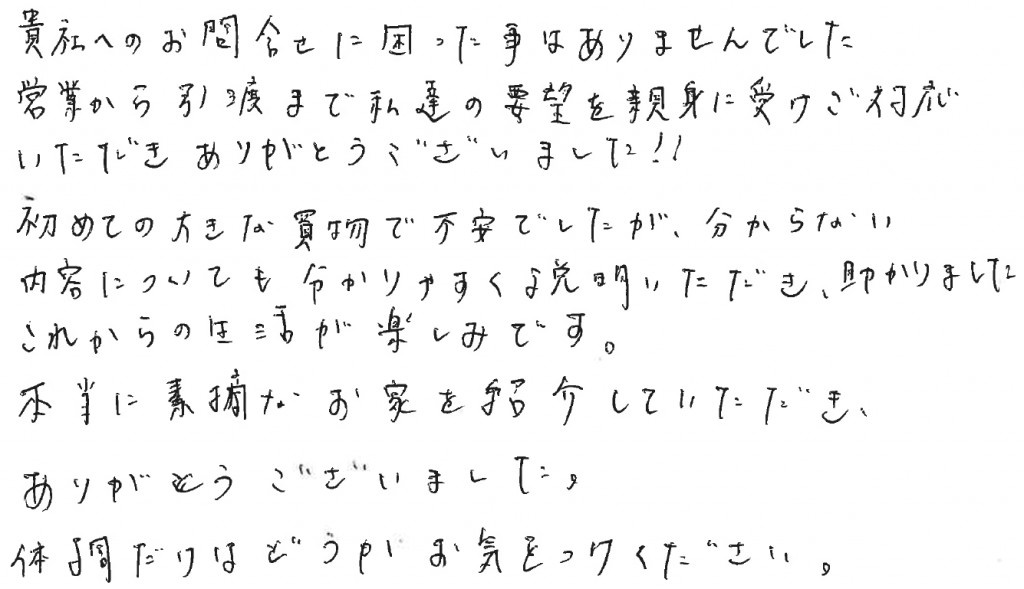 貴社へのお問合せに困った事はありませんでした
営業から引渡まで私達の要望を親身に受けご対応
いただきありがとうございました!!
初めての大きな買物で不安でしたが、分からない
内容についても分かりやすく説明いただき、助かりました
これからの生活が楽しみです。
本当に素敵なお家を紹介していただき、
ありがとうございました。
体調だけはどうかお気をつけください。